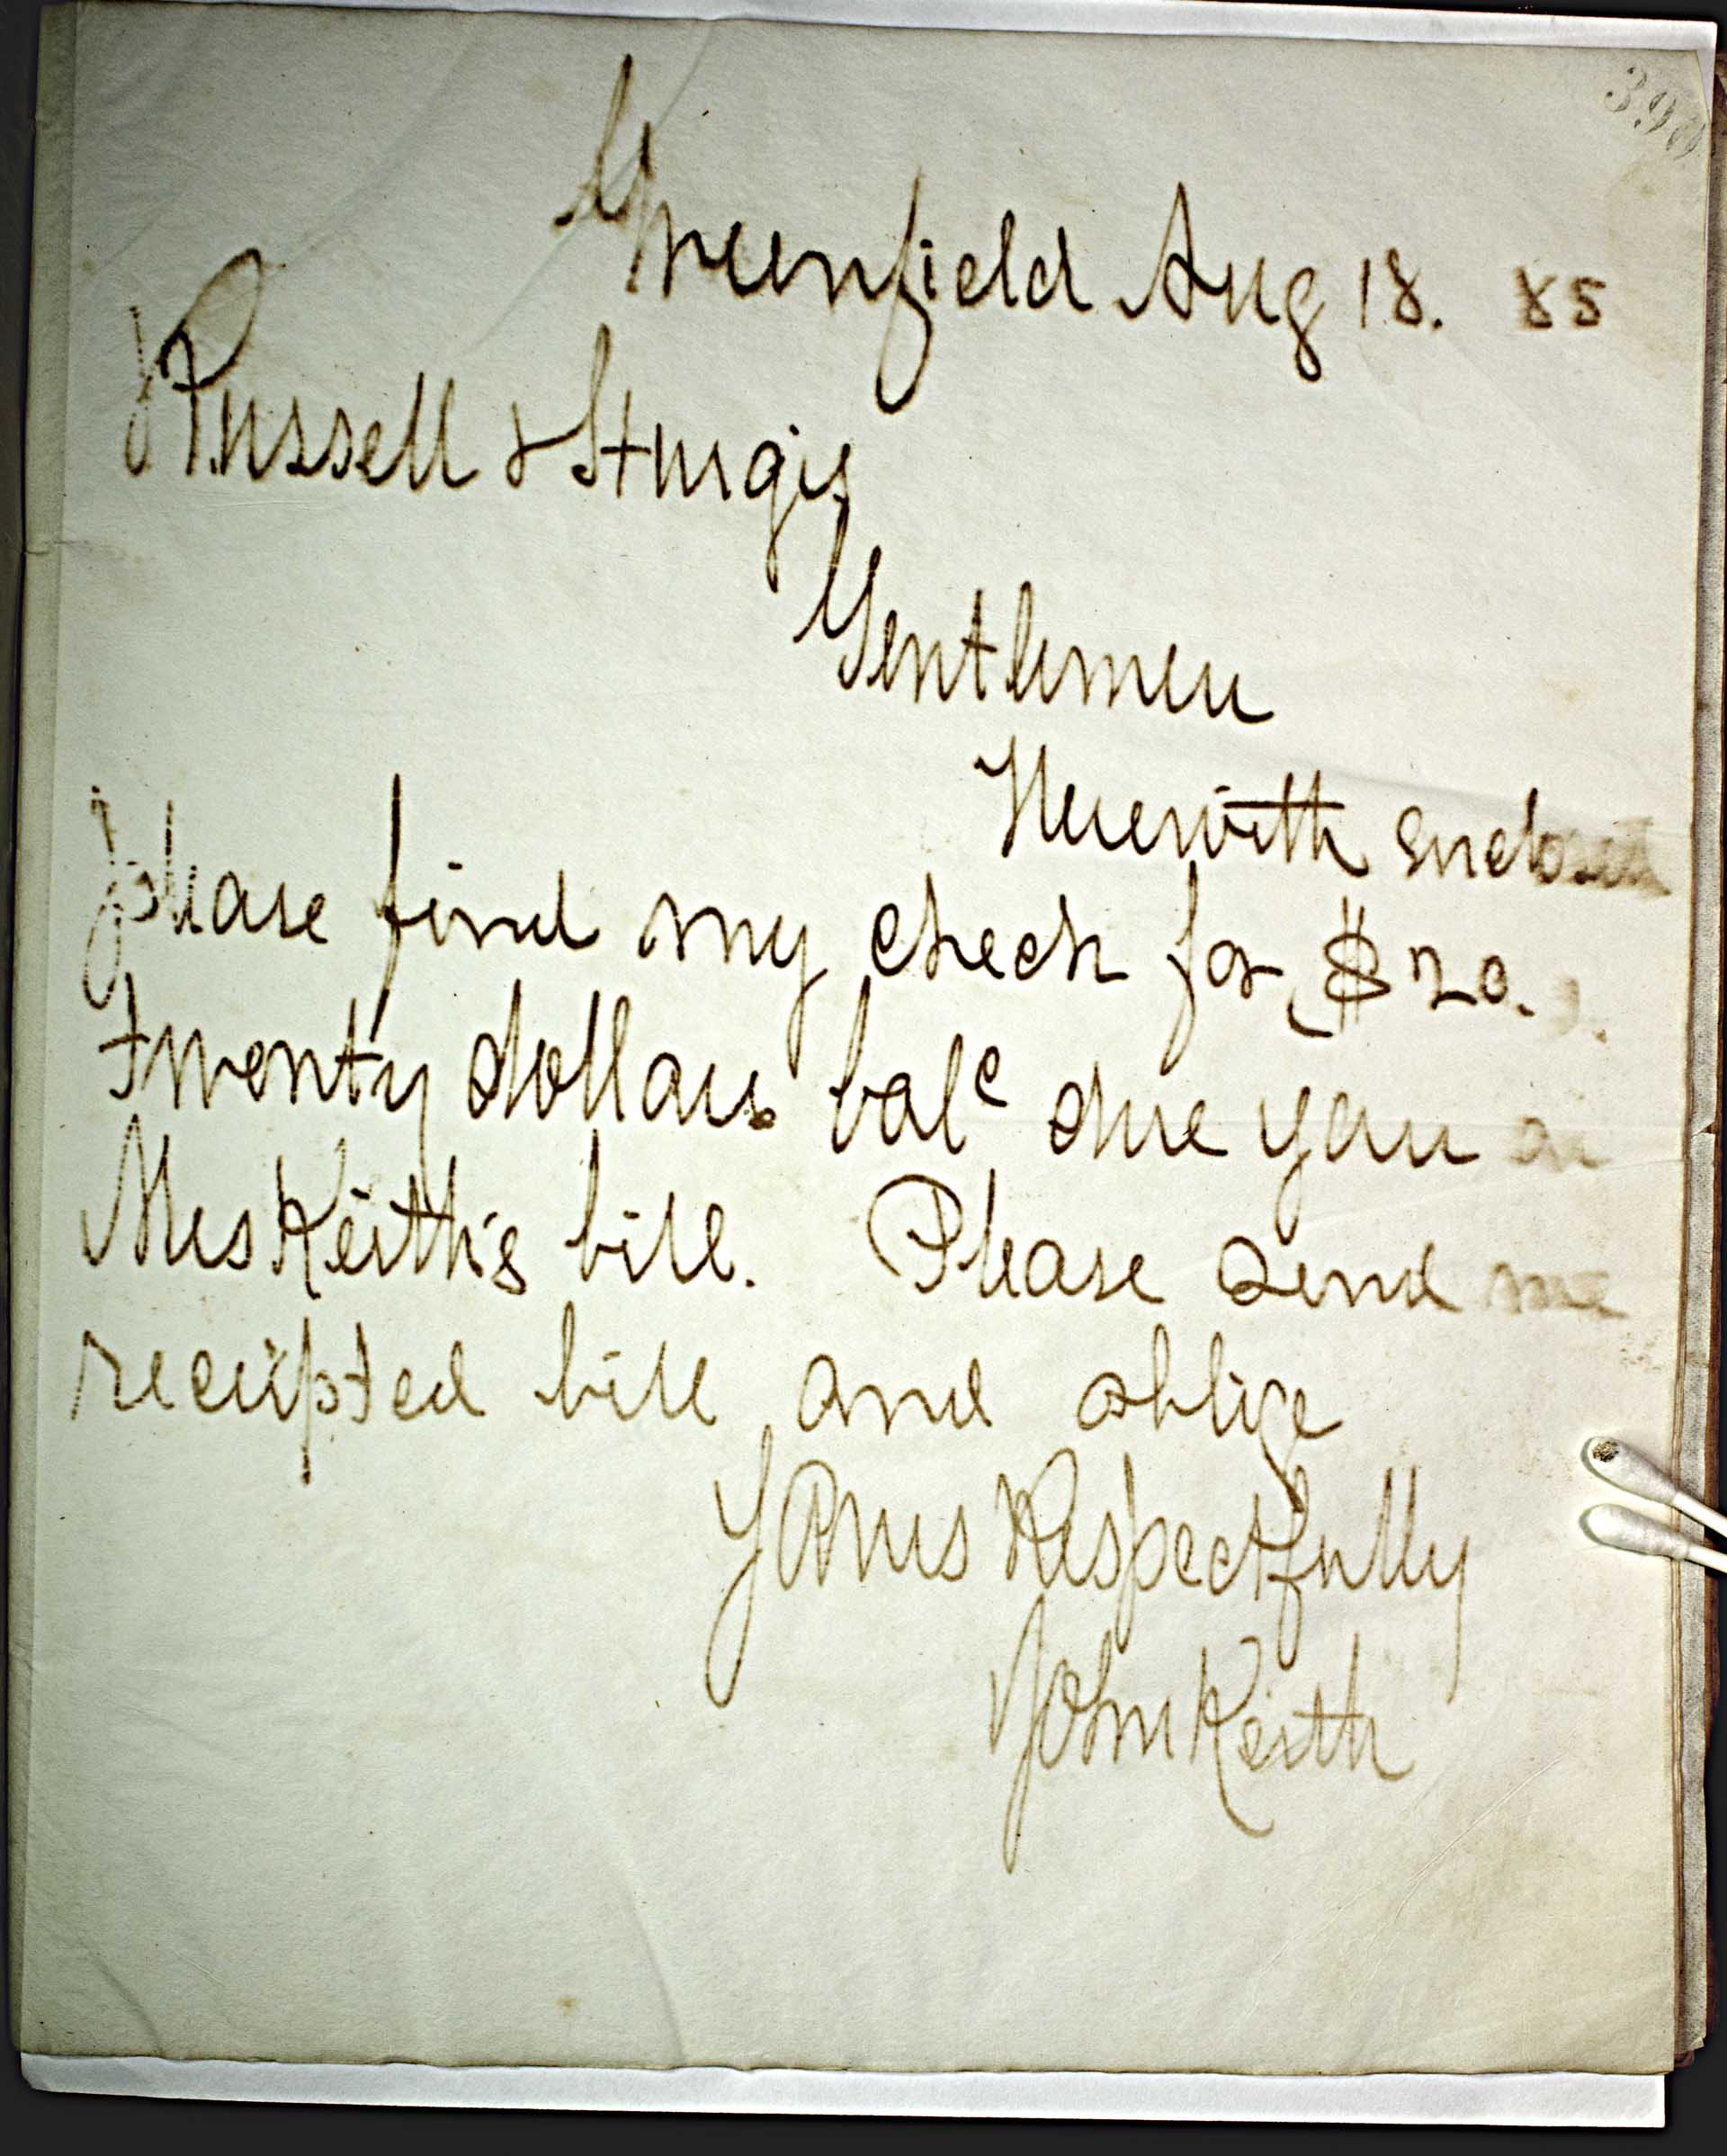 390
Greenfield Aug 18. 85
Russell & Sturgis
Gentlemen
Herewith enclosed
please find my check for $20.
twenty dollars balc due you on
Mrs Keith's bill. Please send me
receipted bill and oblige
Yours Respectfully
John Keith